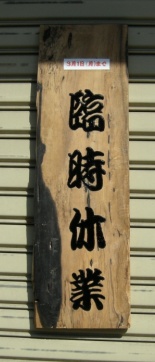 5月1日(月)まで
臨時休業